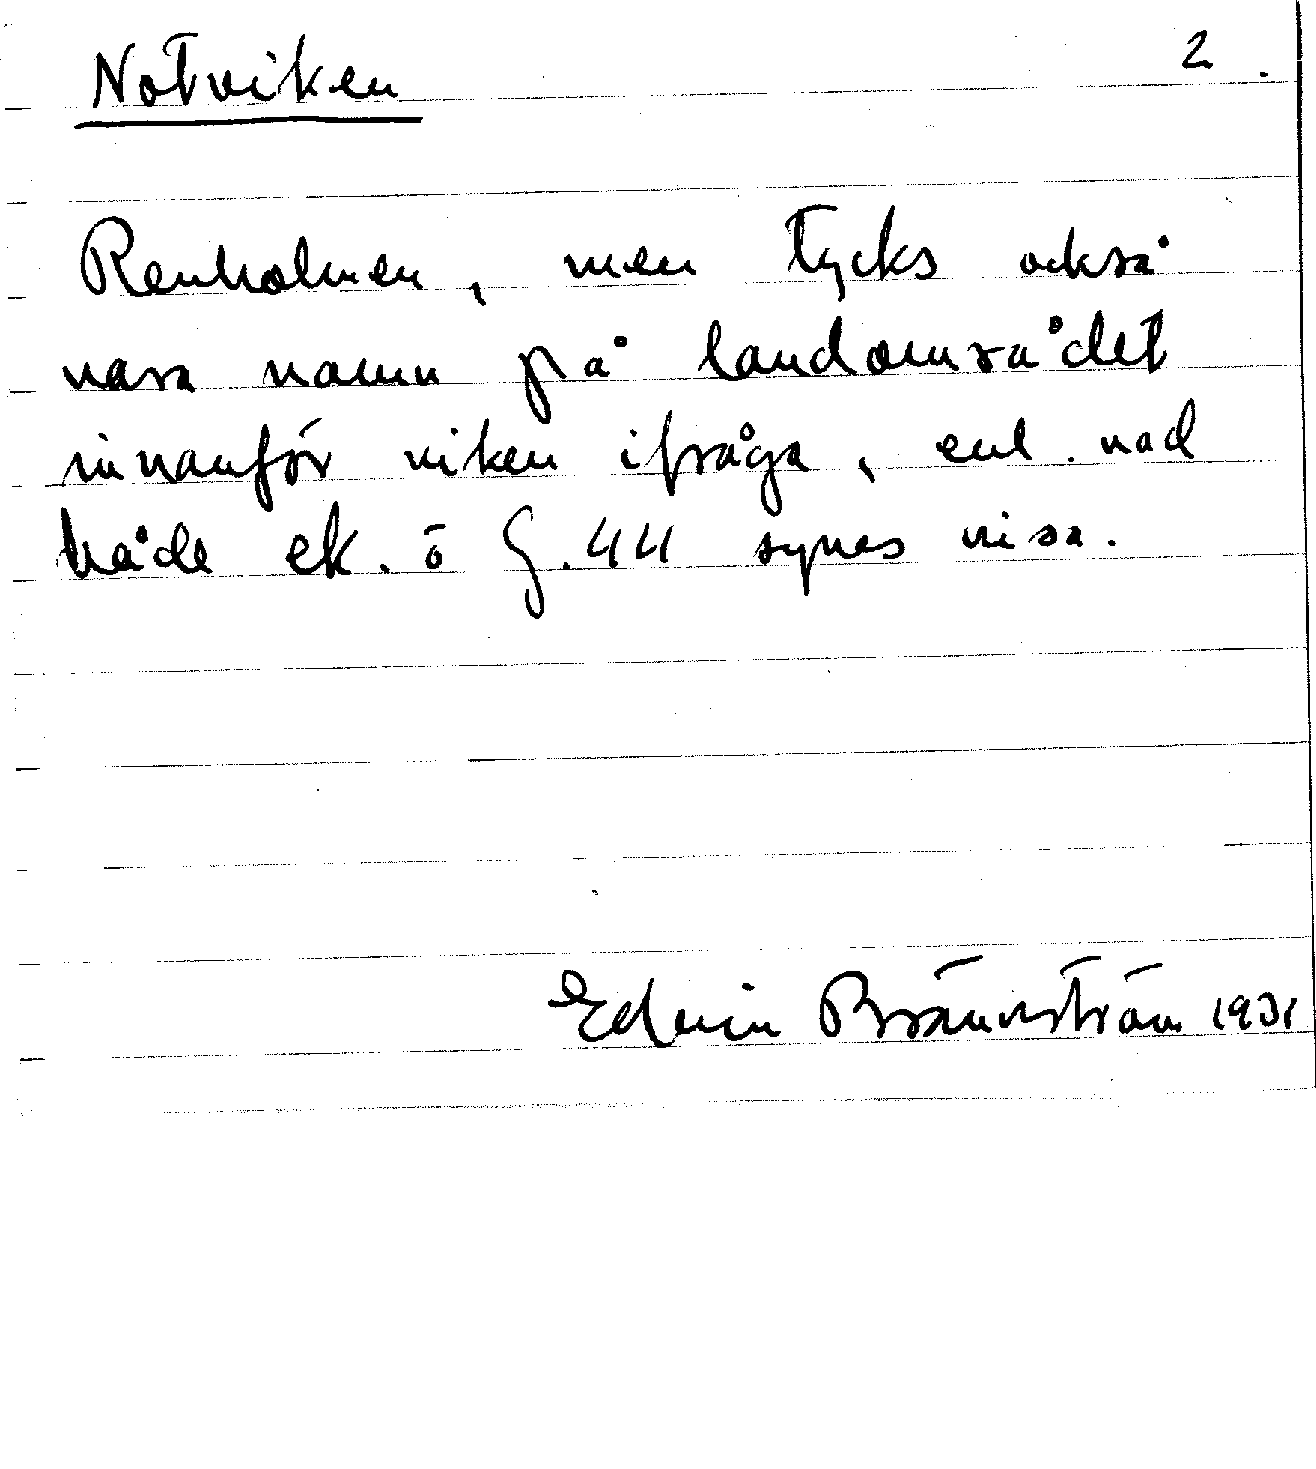 Notviken 2.
Renholmen, men tycks också
vara namn på landområdet
innanför viken ifråga, enl. vad
både ek. o G. 44 synes visa.
Edvin Brännström 1931